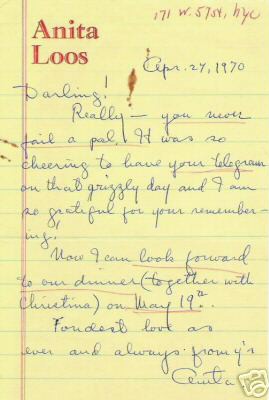 Anita
Loos
171 W. 57St, nyc
Apr. 27, 1970
Darling!
Really — you never
fail a pal. It was so
cheering to have your telegram
on that grizzly day and I am
so grateful for your remember-
ing!
Now I can look forward
to our dinner (together with
Christina) on May 19th.
Fondest love as
ever and always from y'r
Anita